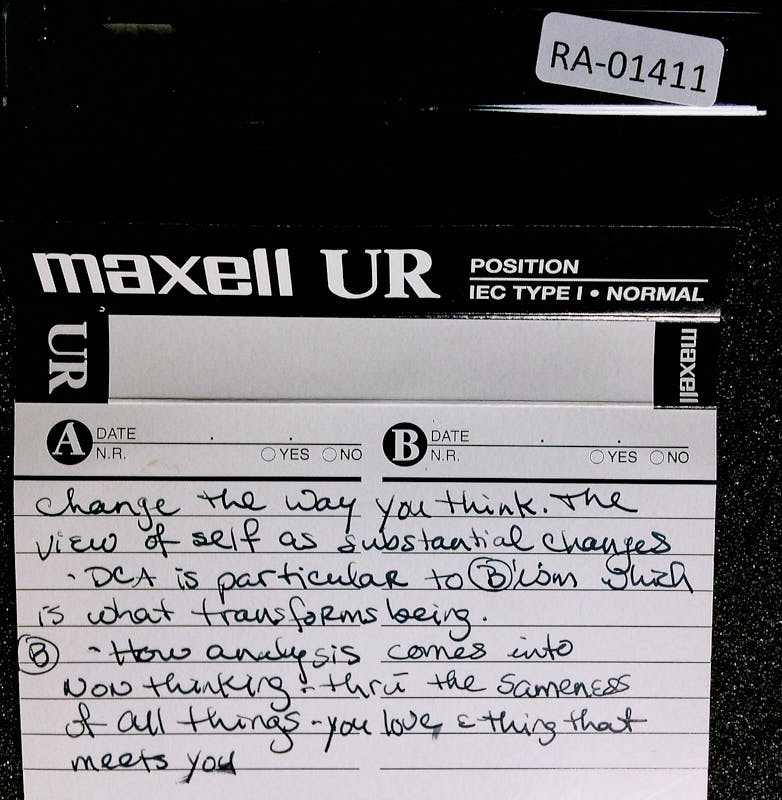 RA-01411
maxell UR POSITION
IEC TYPE I • NORMAL
UR
maxell
A DATE
N.R. YES NO
B DATE
N.R. YES NO
change the way you think. The
view of self as substantial changes
· DCA is particular to (B)'ism which
is what transforms being.
(B) - How analysis comes into
Non thinking - thru the sameness
of all things - you love thing that
meets you